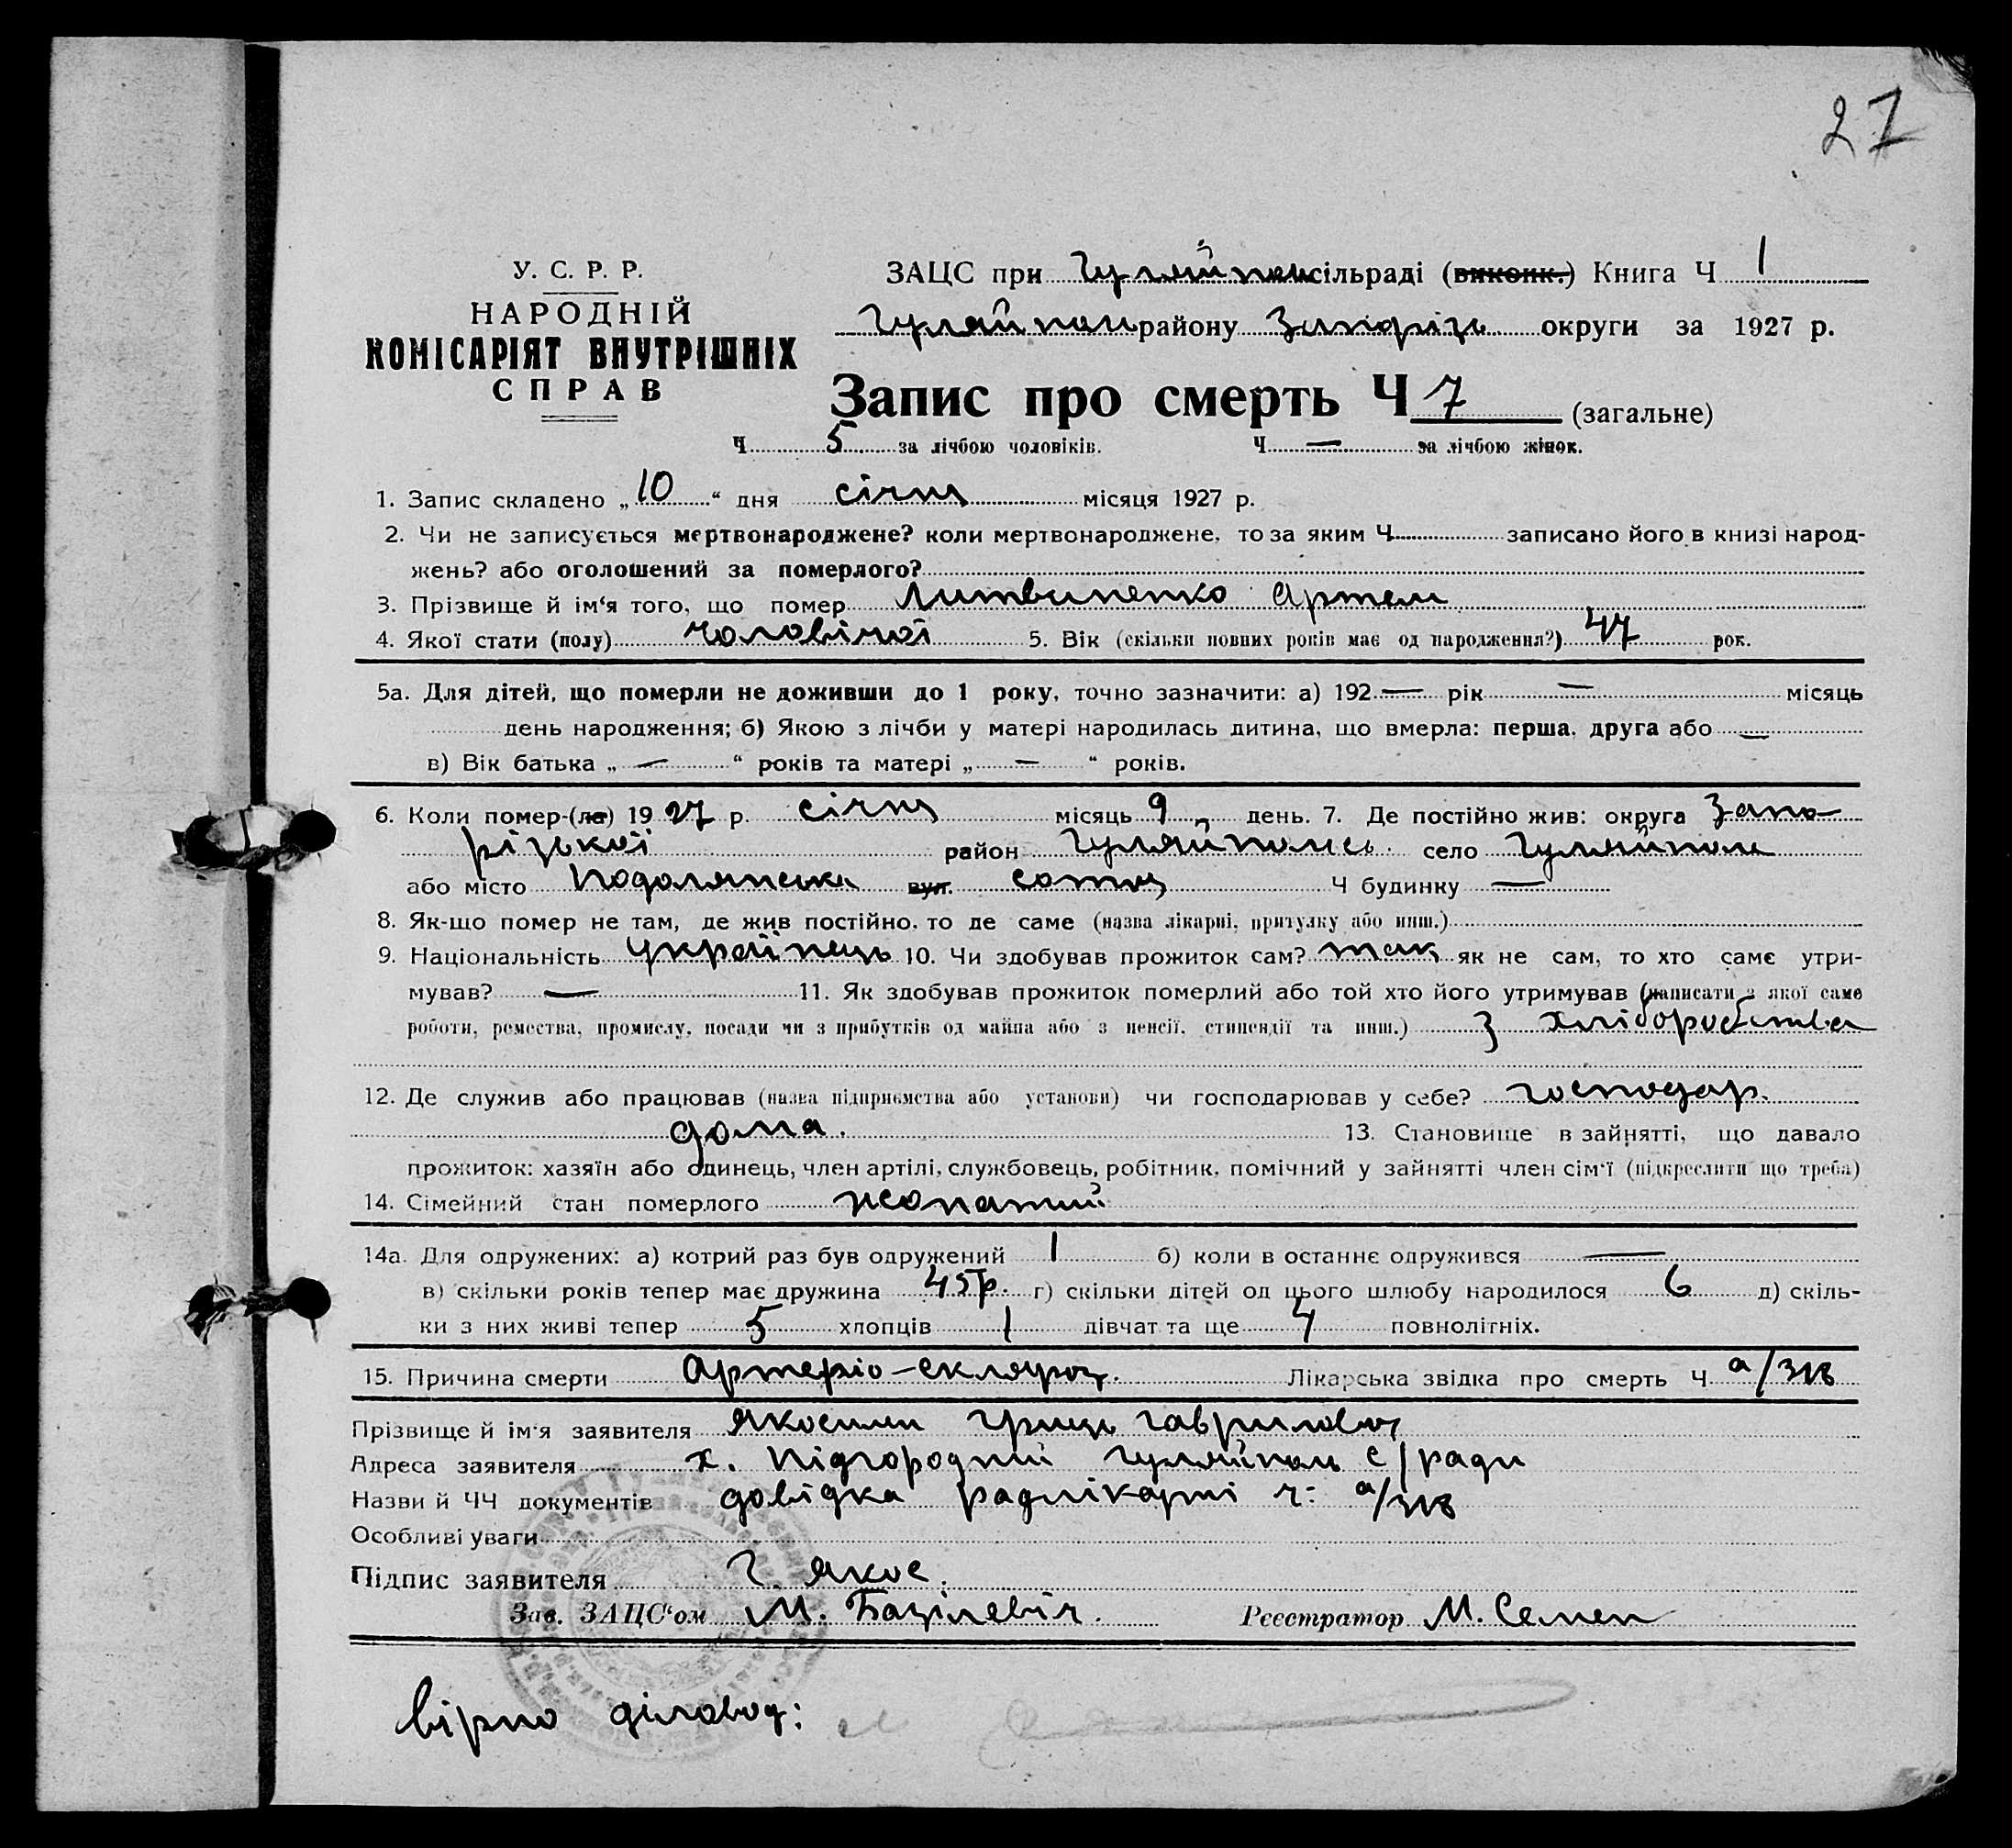 27
У. С. Р. Р.
НАРОДНІЙ
КОМІСАРІЯТ ВНУТРІШНІХ
СПРАВ
ЗАЦС при Гуляйпольсільраді (виконк.) Книга Ч 1
Гуляйпол району Запоріз округи за 1927 р.
Запис про смерть Ч 7 (загальне)
Ч 5 за лічбою чоловіків. Ч — за лічбою жінок.
1. Запис складено „10“ дня січня місяця 1927 р.
2. Чи не записується мертвонароджене? коли мертвонароджене, то за яким Ч записано його в книзі народ-
жень? або оголошений за померлого?
3. Прізвище й ім'я того, що помер Литвиненко Артем
4. Якої стати (полу) чоловічої 5. Вік (скільки повних років має од народження?) 47 рок.
5а. Для дітей, що померли не доживши до 1 року, точно зазначити: а) 192 — рік — місяць
день народження; б) Якою з лічби у матері народилась дитина, що вмерла: перша, друга або —
в) Вік батька „ — “ років та матері „ — “ років.
6. Коли помер-(ла) 1927 р. січня місяць 9 день. 7. Де постійно жив: округа Запо
різької район Гуляйпольсь. село Гуляйполе
або місто Подолянська вул. сотня Ч будинку —
8. Як-що помер не там, де жив постійно, то де саме (назва лікарні, притулку або инш.)
9. Національність українець 10. Чи здобував прожиток сам? так як не сам, то хто саме утри-
мував? — 11. Як здобував прожиток померлий або той хто його утримував (написати з якої саме
роботи, ремества, промислу, посади чи з прибутків од майна або з пенсії, стипендії та инш.) З хліборобства
12. Де служив або працював (назва підприємства або установи) чи господарював у себе? господар.
дома. 13. Становище в зайнятті, що давало
прожиток: хазяїн або одинець, член артілі, службовець, робітник, помічний у зайнятті член сім'ї (підкреслити що треба)
14. Сімейний стан померлого жонатий
14а. Для одружених: а) котрий раз був одружений 1 б) коли в останнє одружився —
в) скільки років тепер має дружина 45 р. г) скільки дітей од цього шлюбу народилося 6 д) скіль-
ки з них живі тепер 5 хлопців 1 дівчат та ще 4 повнолітніх.
15. Причина смерти Артеріо-склероз. Лікарська звідка про смерть Ч
Прізвище й ім'я заявителя Гриць Гаврилович
Адреса заявителя х. Підгородній Гуляйполь с/ради
Назви й ЧЧ документів довідка радлікарні ч:
Особливі уваги
Підпис заявителя Г. Якос.
Зав. ЗАЦС'ом М. Базілевіч. Реєстратор М. Семен
Вірно діловод: